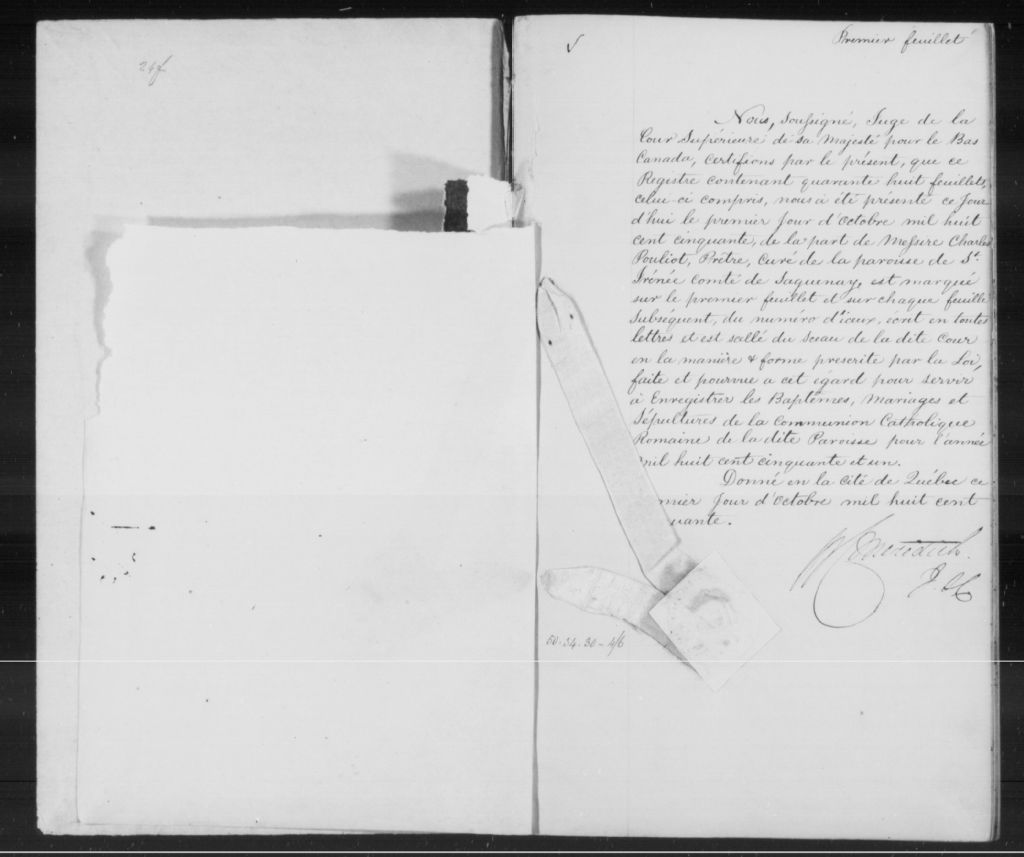 Premier feuillet
Nous, soussigné, Juge de la
Cour Supérieure de sa Majesté pour le Bas
Canada, certifions par le présent, que ce
Registre contenant quarante huit feuillets,
celui ci compris, nous a été présenté ce Jour
d'hui le premier Jour d'Octobre mil huit
cent cinquante, de la part de Messire Charles
Pouliot, Prêtre, curé de la paroisse de St.
Irénée comté de Saguenay, est marqué
sur le premier feuillet et sur chaque feuillet
Subséquent, du numéro d'iceux, écrit en toutes
lettres et est scellé du Sceau de la dite Cour
en la manière & forme prescrite par la Loi,
faite et pourvue a cet égard pour servir
à Enregistrer les Baptêmes, Mariages et
Sépultures de la Communion Catholique
Romaine de la dite Paroisse pour l'année
mil huit cent cinquante et un.
Donné en la cité de Québec ce
mier Jour d'Octobre mil huit cent
uante.
Meredith.
J. SC
50-34-30-4/6